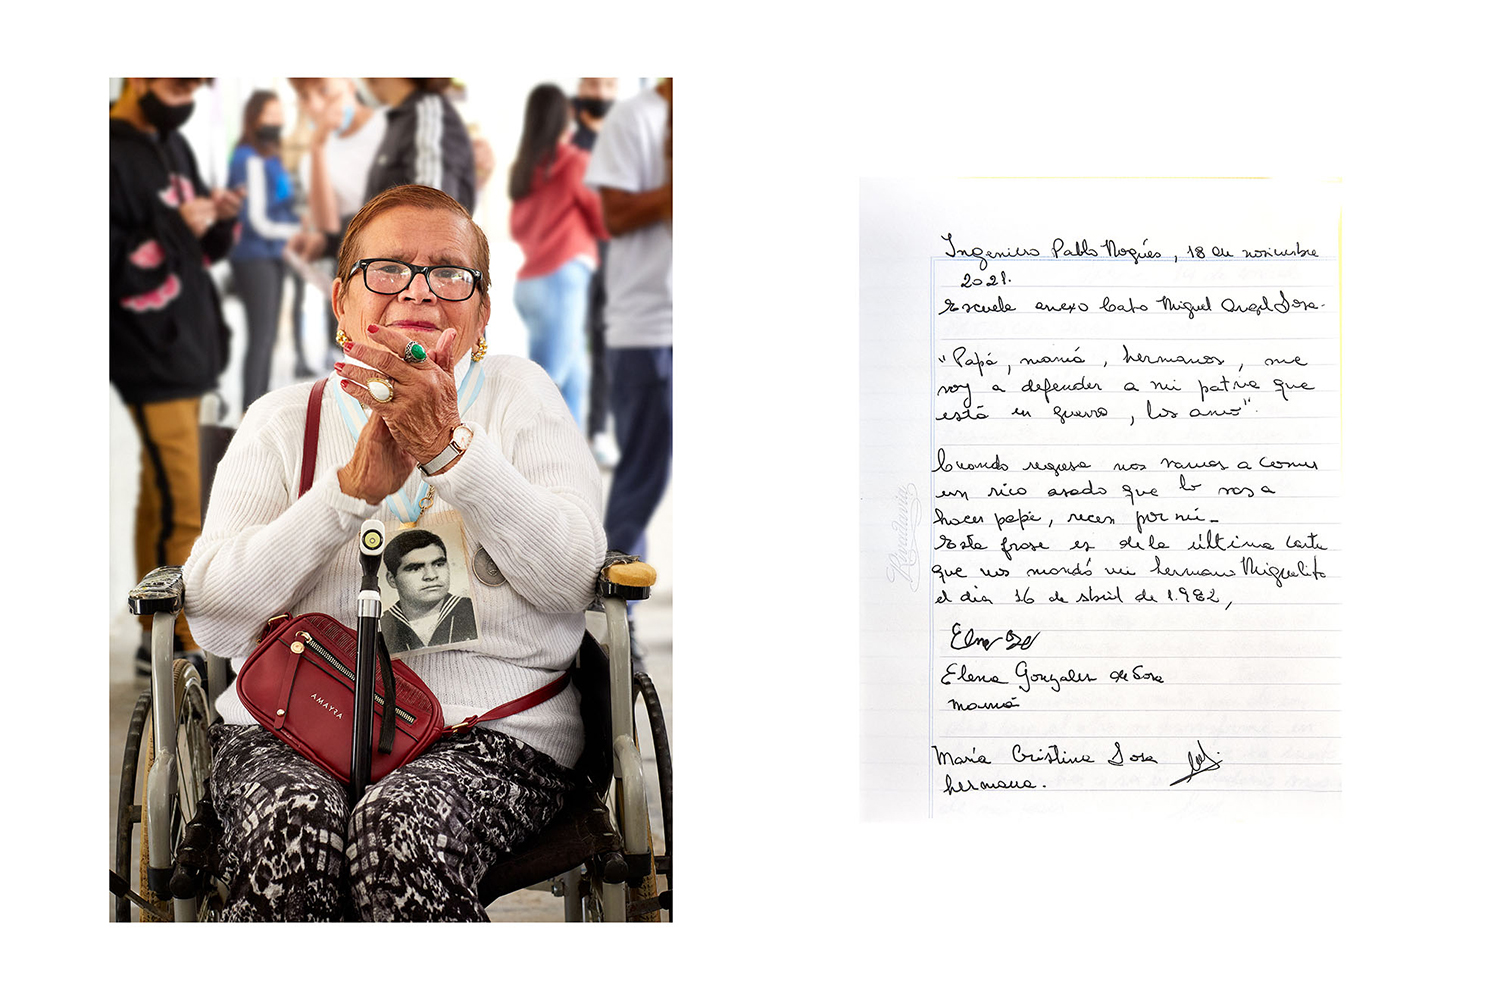 AMAYRA
Ingeniero Pablo Nogués, 18 de noviembre
2021.
Escuela anexo Cabo Miguel Angel Sosa-
"Papá, mamá, hermanos, me
voy a defender a mi patria que
está en guerra, los amo".
Cuando regrese nos vamos a comer
un rico asado que lo vas a
hacer papá, recen por mi-
Esta frase es de la última carta
que nos mandó mi hermano Miguelito
el día 16 de abril de 1.982,
Elena Gonzales de Sosa
mamá
María Cristina Sosa
hermana.
Rivadavia